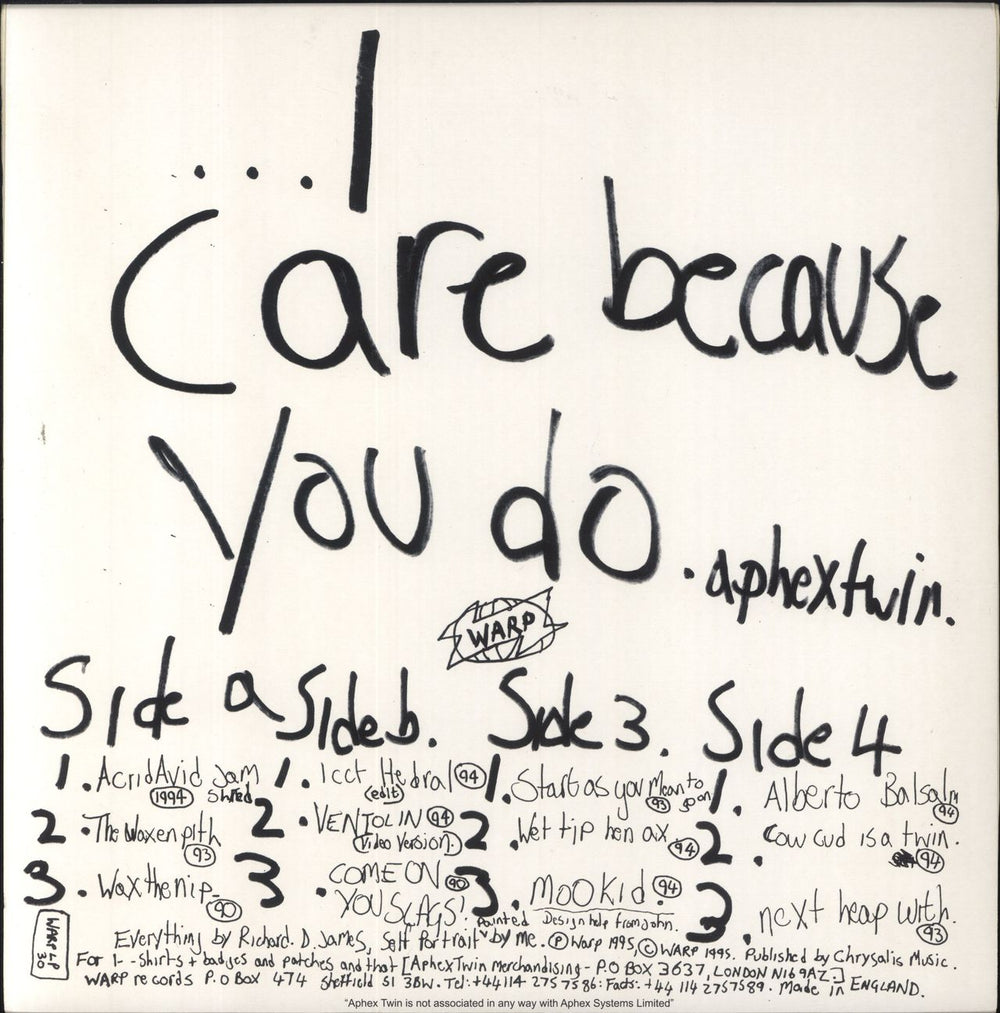 ...I
Care because
you do.
aphextwin.
WARP
Side a
1. AcridAvid Jam
Shred
1994
2. The Waxen pith
93
3. Wax the nip
90
Side b.
1. Icct Hedral 94
(edit)
2. VENTOLIN 94
(Video Version.)
3. COME ON 90
YOU SLAGS!
Side 3.
1. Start as you Mean to
93 go on
2. Wet tip hen ax. 94
3. Mookid. 94
Side 4
1. Alberto Balsalm
94
2. Cow cud is a twin.
94
3. next heap with.
93
WARP LP
30
Design help from John.
Everything by Richard. D. James, Self Portrait painted by me. ℗ Warp 1995, © WARP 1995. Published by Chrysalis Music.
For T--shirts + badges and patches and that [Aphex Twin Merchandising - P.O BOX 3637, LONDON N16 9AZ.]
WARP records P.O Box 474 Sheffield S1 3BW. Tel: +44114 2757586: Facts: +44 114 2757589. Made in ENGLAND.
"Aphex Twin is not associated in any way with Aphex Systems Limited"